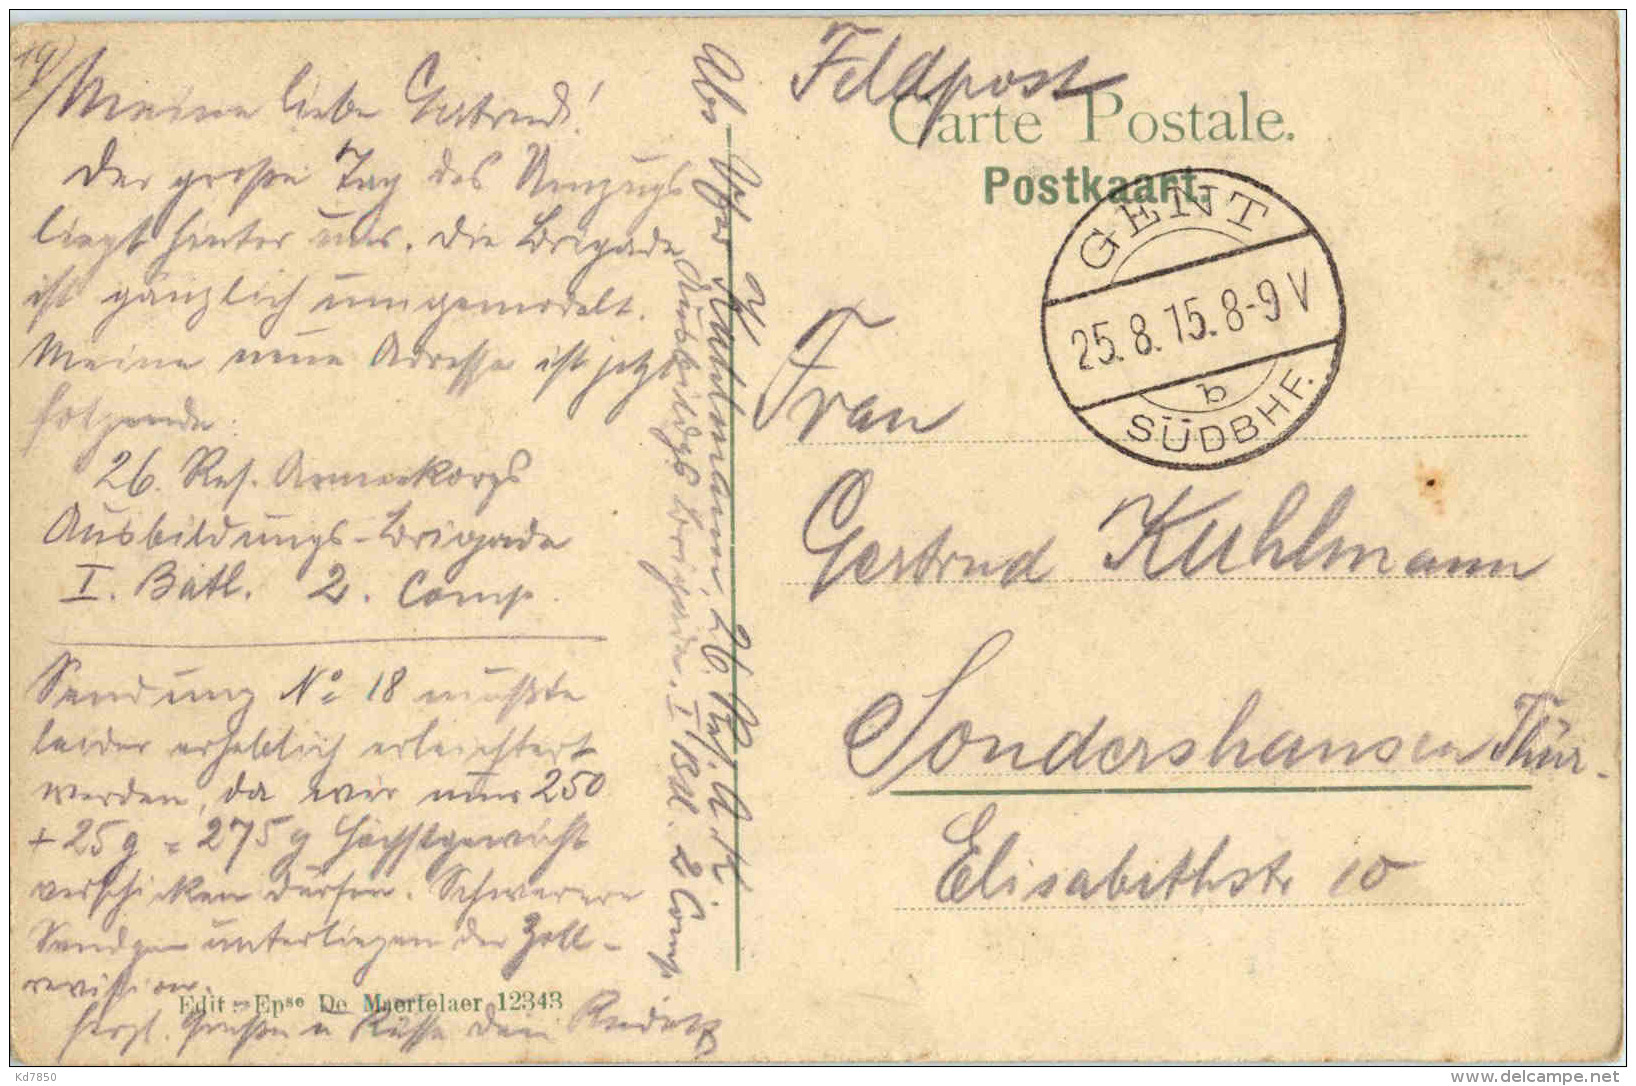 19)
Meine liebe Gertrud!
Der große Tag des Umzugs
liegt hinter uns. Die Brigade
ist gänzlich umgemodelt.
Meine neue Adresse ist jetzt
folgende:
26. Res. Armeekorps
Ausbildungs-Brigade
I. Batl. 2. Comp.
Sendung No 18 mußte
leider erheblich erleichtert
werden, da wir nur 250
+ 25 g = 275 g Höchstgewicht
verschicken dürfen. Schwerere
Sendgen unterliegen der Zoll-
revision.
Edit - Epse De Maertelaer 12343
herzl. Grüße u Küsse Dein Rudolf
Abs Kuhlmann, 26. Res. A. K.
Ausbildgs Brigade. I Batl. 2 Comp.
Feldpost
Carte Postale.
Postkaart.
GENT
25.8.15.8-9 V
b
SÜDBHF.
Frau
Gertrud Kuhlmann
Sondershausen Thür.
Elisabethstr 10
Kd7850
delcampe.net